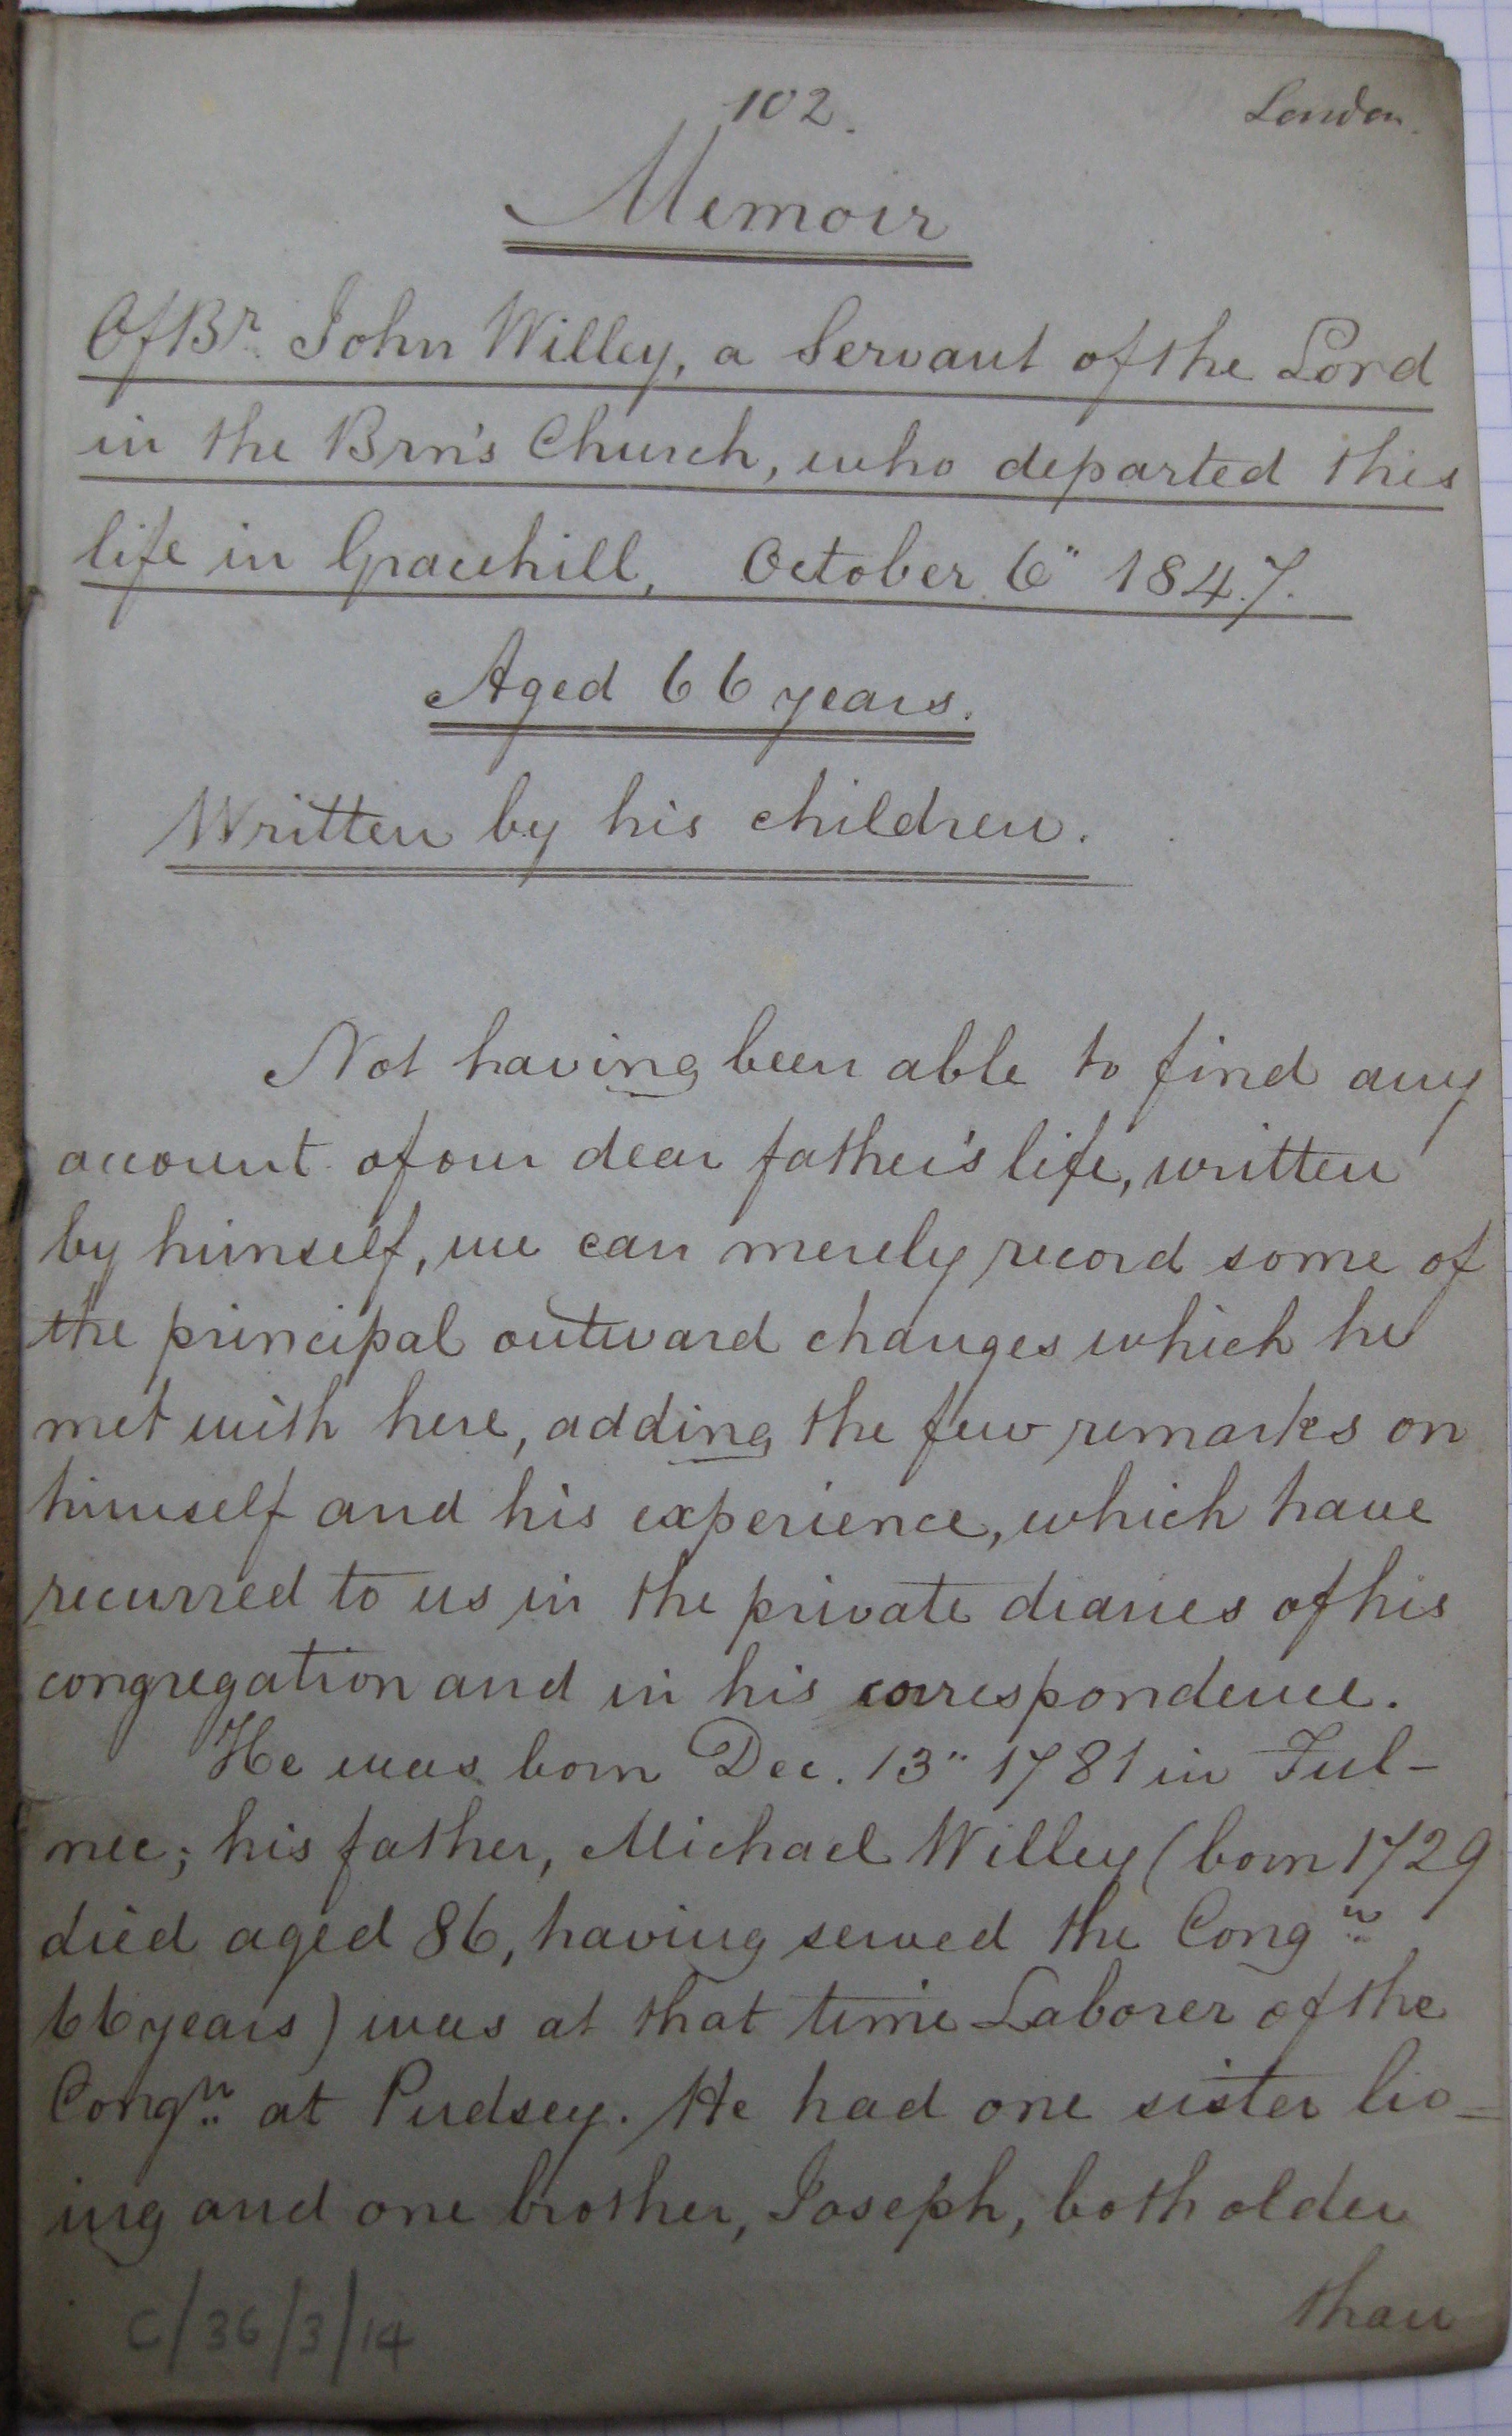 102.
London.
Memoir
Of Br. John Willey, a Servant of the Lord
in the Brn's Church, who departed this
life in Gracehill, October 6" 1847.
Aged 66 years.
Written by his children.
Not having been able to find any
account of our dear father's life, written
by himself, we can merely record some of
the principal outward changes which he
met with here, adding the few remarks on
himself and his experience, which have
recurred to us in the private diaries of his
congregation and in his correspondence.
He was born Dec. 13" 1781 in Ful-
nec; his father, Michael Willey (born 1729
died aged 86, having served the Congn.
66 years) was at that time Laborer of the
Congn. at Pudsey. He had one sister liv=
ing and one brother, Joseph, both older
than
C/36/3/14